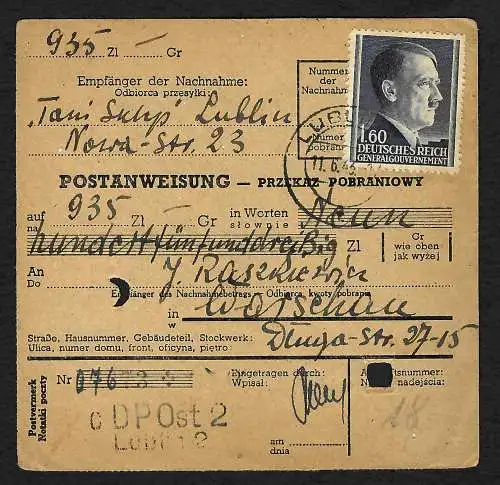 935 Zl — Gr
Empfänger der Nachnahme:
Odbiorca przesyłki:
"Tani Sklep" Lublin
Nowa-Str. 23
Nummer
der
Nachnahm
numer
pobrani
LUBL
11.6.43
1.60
DEUTSCHES REICH
GENERALGOUVERNEMENT
POSTANWEISUNG — PRZEKAZ POBRANIOWY
auf
na
935 Zl — Gr
in Worten
słownie
Neun
hundertfünfunddreißig Zl
Gr
wie oben
jak wyżej
An
Do
J. Raszkiewicz
Empfänger des Nachnahmebetrags – Odbiorca kwoty pobrania
in
w
Warschau
Straße, Hausnummer, Gebäudeteil, Stockwerk:
Ulica, numer domu, front, oficyna, piętro:
Długa-Str. 27-15
Postvermerk
Notatki poczty
Nr 076
Eingetragen durch:
Wpisał:
A tsnummer:
N nadejścia:
18
DPOst 2
am
dnia